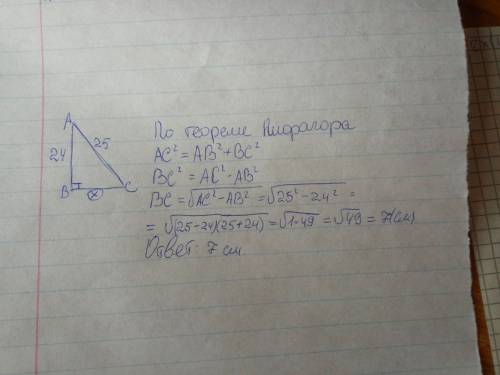 A
24
25
B
x
C
По теореме Пифагора
AC² = AB² + BC²
BC² = AC² - AB²
BC = √AC² - AB² = √25² - 24² =
= √(25-24)(25+24) = √1·49 = √49 = 7(см)
Ответ: 7 см.